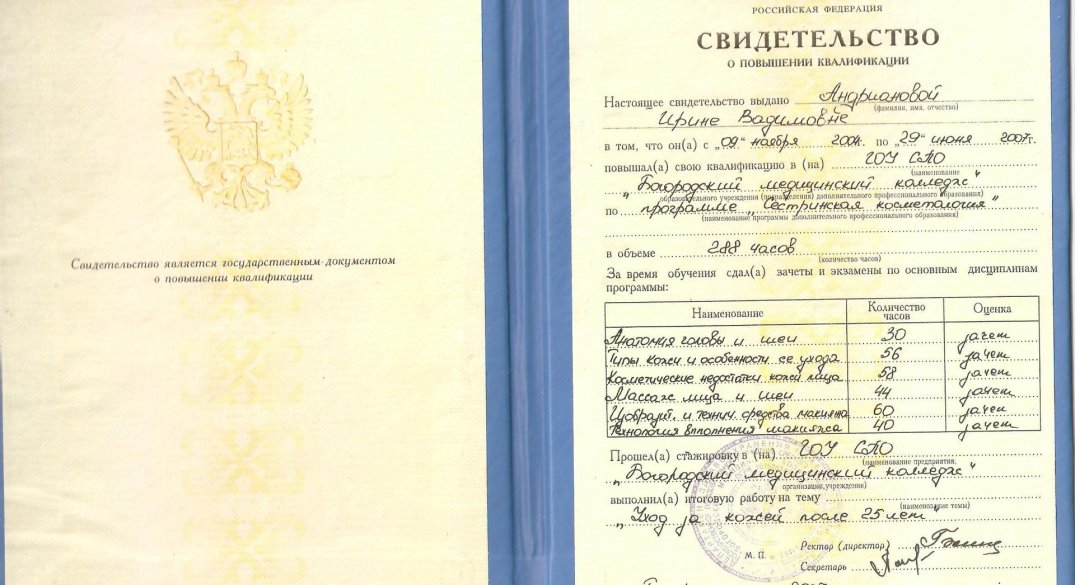 Свидетельство является государственным документом
о повышении квалификации
РОССИЙСКАЯ ФЕДЕРАЦИЯ
СВИДЕТЕЛЬСТВО
О ПОВЫШЕНИИ КВАЛИФИКАЦИИ
Настоящее свидетельство выдано Андриановой
(фамилия, имя, отчество)
Ирине Вадимовне
в том, что он(а) с „09“ ноября 2004. по „29“ июня 2007г.
повышал(а) свою квалификацию в (на) ГОУ СПО
(наименование
„Богородский медицинский колледж“
образовательного учреждения (подразделения) дополнительного профессионального образования)
по программе „Сестринская косметология“
(наименование программы дополнительного профессионального образования)
в объеме 288 часов
(количество часов)
За время обучения сдал(а) зачеты и экзамены по основным дисциплинам
программы:
Наименование Количество часов Оценка
Анатомия головы и шеи 30 зачет
Типы кожи и особенности ее ухода 56 зачет
Косметические недостатки кожи лица 58 зачет
Массаж лица и шеи 44 зачет
Изобразит. и технич. средства макияжа 60 зачет
Технология выполнения макияжа 40 зачет
Прошел(а) стажировку в (на) ГОУ СПО
(наименование предприятия,
„Богородский медицинский колледж“
организации, учреждения)
выполнил(а) итоговую работу на тему
(наименование темы)
„Уход за кожей после 25 лет“
Ректор (директор)
М. П.
Секретарь